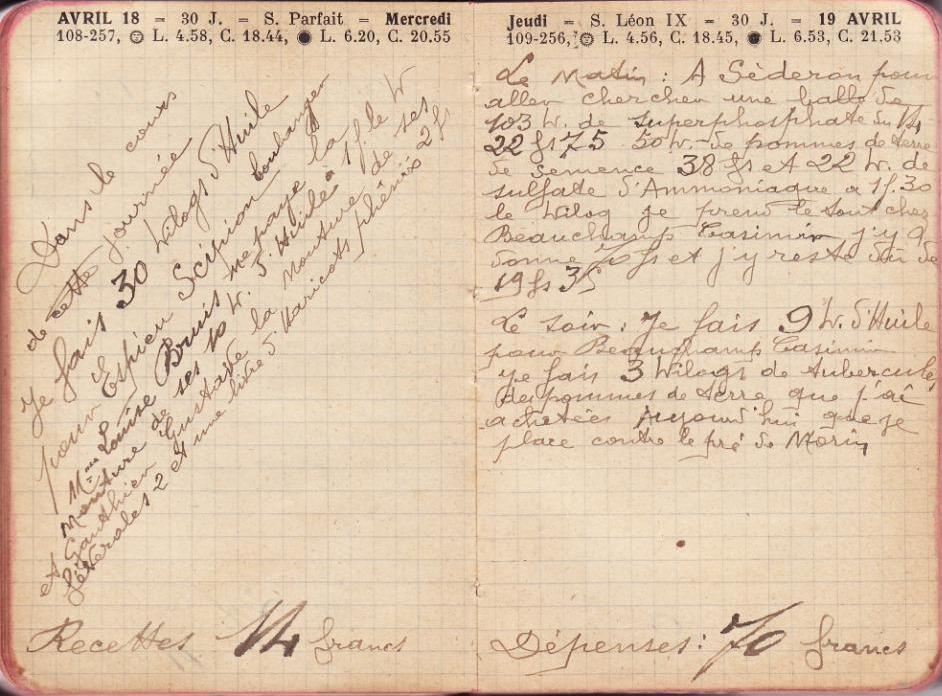 AVRIL 18 = 30 J. = S. Parfait = Mercredi
108-257, L. 4.58, C. 18.44, ● L. 6.20, C. 20.55
Dans le cours
de cette journée
Je fais 30 kilogs d'Huile
pour Espieu Scipion boulanger
Mme Louise Bruis me paye la
Monture de ses 10 K. d'Huile à 1f. le K
et Gauthier Gustave la Monture de ses
litérales 2 et une litre d'Haricots phénix 2fs
Recettes 14 francs
Jeudi = S. Léon IX = 30 J. = 19 AVRIL
109-256, L. 4.56, C. 18.45, ● L. 6.53, C. 21.53
Le Matin : A Séderon pour
aller chercher une balle de
103 K. de superphosphate du 14
22 fs 75 50 K. de pommes de terre
de semence 38 fs et 22 K. de
sulfate d'Ammoniaque a 1f.30
le Kilog je prend le tout chez
Beauchamp Casimir j'y ai
donne 70 fs et j'y reste dû de
19 fs 35
Le soir : Je fais 9 K. d'Huile
pour Beauchamp Casimir
je fais 3 Kilogs de tubercule
des pommes de terre que j'ai
achetées Aujourd'hui que je
place contre le pré de Morin
Dépenses : 70 francs